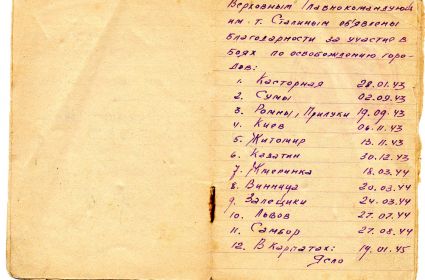 Верховным Главнокомандующ
им. т. Сталиным об'явлены
благодарности за участие в
боях по освобождению горо-
дов:
1. Касторная 28.01.43
2. Сумы 02.09.43
3. Ромны, Прилуки 19.09.43
4. Киев 06.11.43
5. Житомир 13.11.43
6. Казатин 30.12.43
7. Жмеринка 18.03.44
8. Винница 20.03.44
9. Залещики 24.03.44
10. Львов 27.07.44
11. Самбор 27.08.44
12. В Карпатах: 19.01.45
Ясло